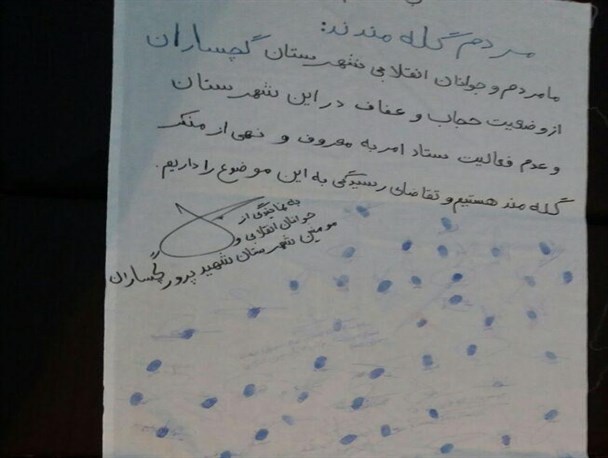 مردم گله مندند:
ما مردم و جوانان انقلابی شهرستان گچساران
از وضعیت حجاب و عفاف در این شهرستان
و عدم فعالیت ستاد امر به معروف و نهی از منکر
گله مند هستیم و تقاضای رسیدگی به این موضوع را داریم.
به نمایندگی از
جوانان انقلابی و
مومنین شهرستان شهید پرور گچساران